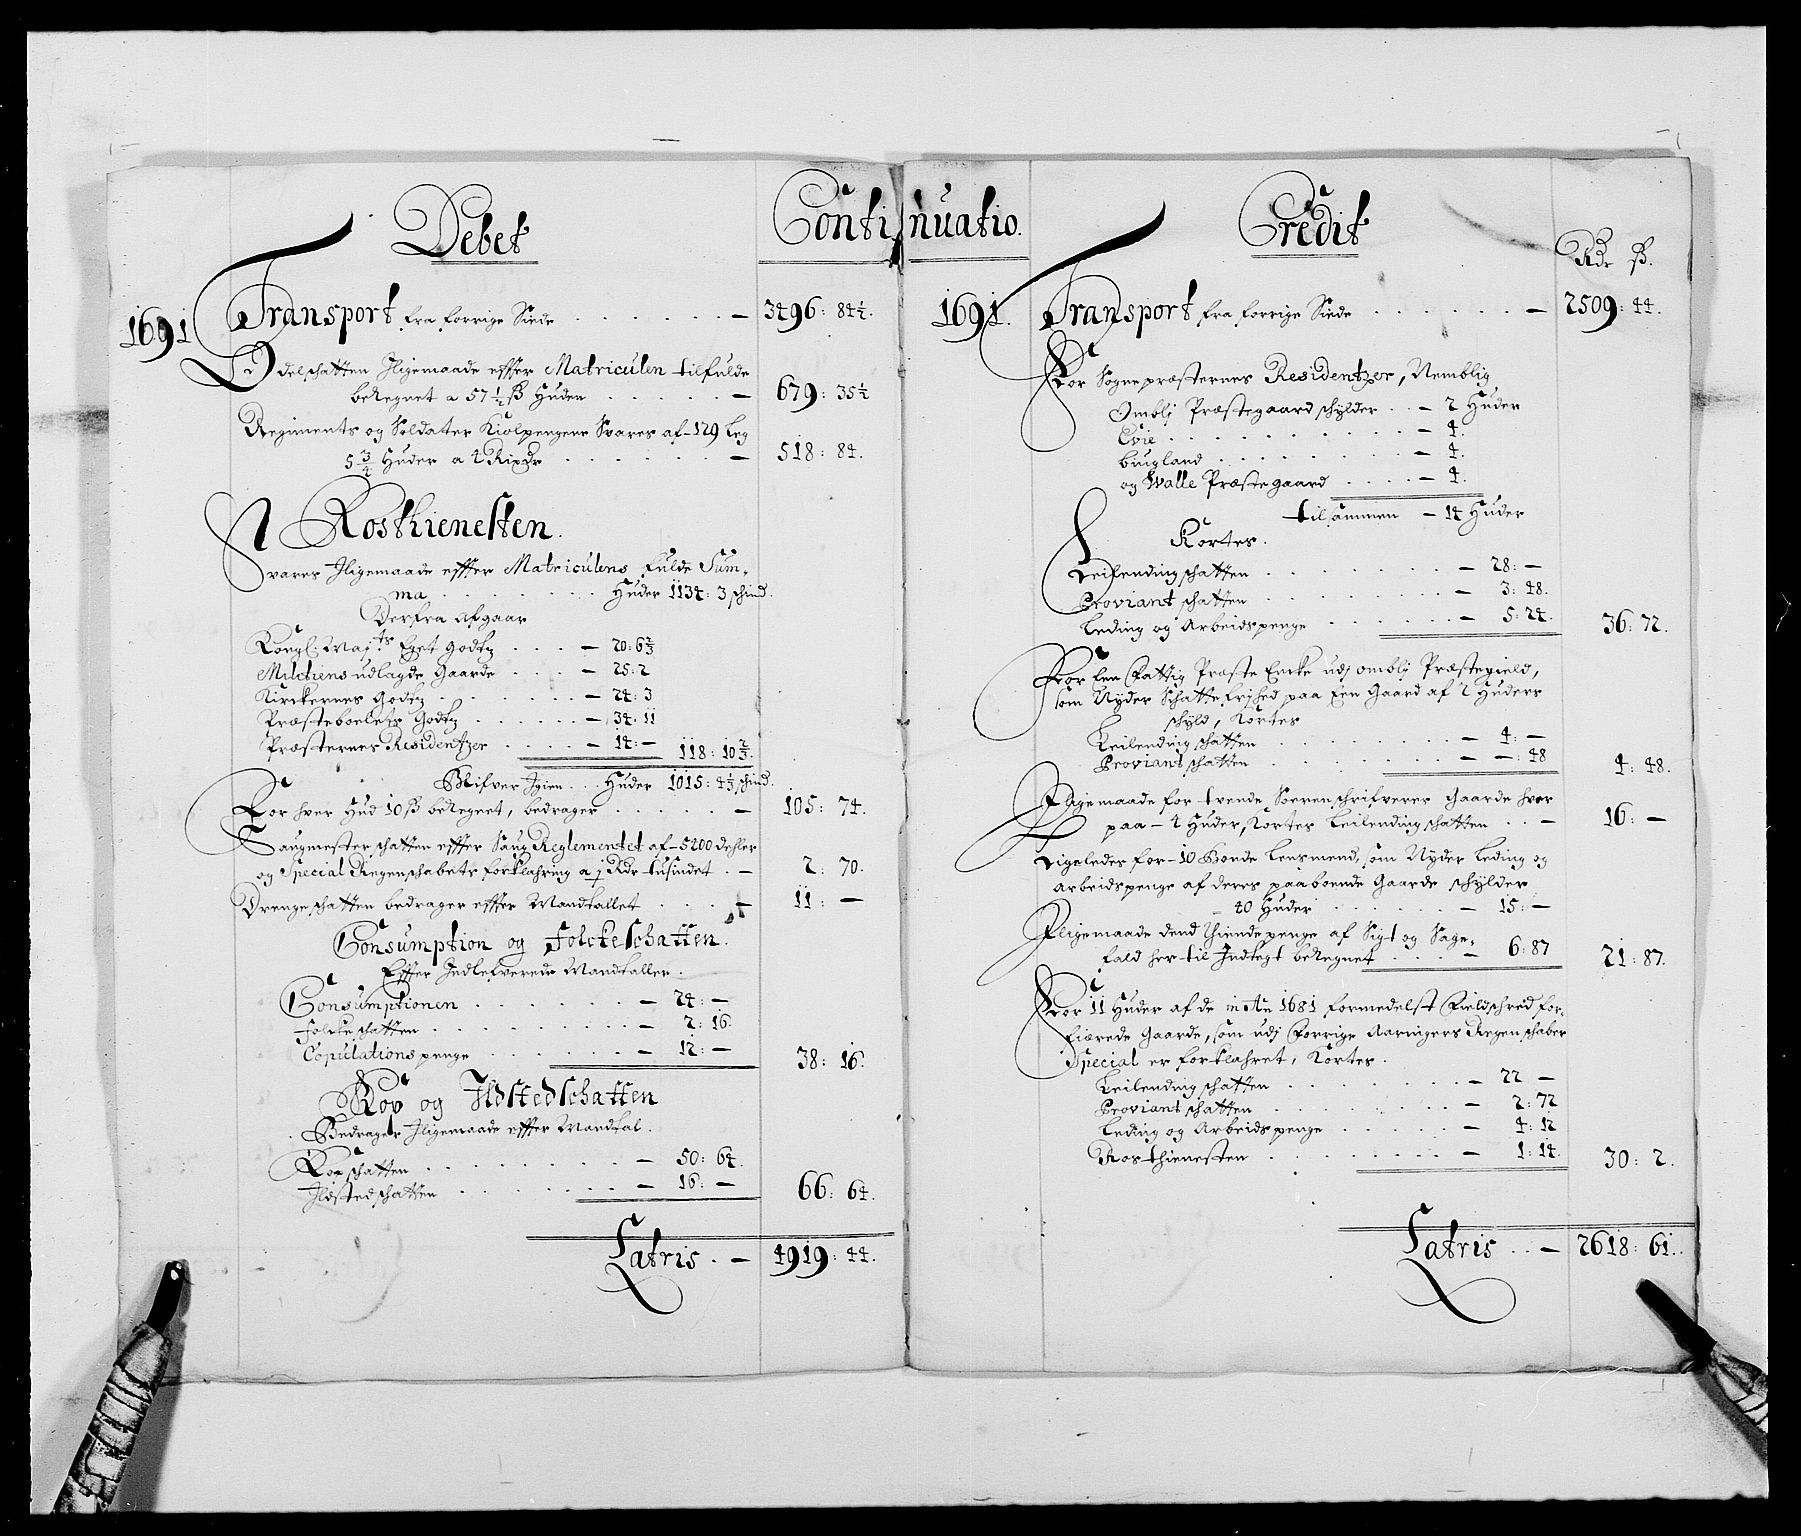 Debet
Continuatio.
1691 Transport fra forrige Siede . . . . . . — 3496: 84½.
Odelschatten Iligemaade effter Matriculen tilfulde
beregnet a 57½ ß Huden . . . . . — 679: 35½
Regiments og Soldatter Kiolpengene Svares af 129 Leg
5¾ Huder a 4 Rixdr . . . . . . — 518: 84.
Rosthienesten.
Svares Iligemaade effter Matriculens fulde Sum-
ma . . . . . . . Huder 1134: 3 schind.
Derfra afgaar
Kongl: Maj.ts Eget Godtz . . . . — 20: 6⅔
Militiens udlagde Gaarde . . . — 25: 2
Kirckernes Godtz . . . . . . — 24: 3
Præsteboelets Godtz . . . . . — 34: 11
Præsternes Residentzer . . . . — 14: — 118: 10⅔.
Blifver Igien . . . Huder 1015: 4⅓ schind.
For hver Hud 10 ß beregnet, bedrager . . . . . — 105: 74.
Saugmester schatten effter Saug Reglementet af 5200 dehler
og Special Regenschabets forklahring a 1 Rdr tusindet . — 2: 70.
Drenge schatten bedrager effter Mandtallet . . . . — 11: —
Consumption og Folckeschatten.
Effter Indlefverede Mandtaller.
Consumptionen . . . . . . . — 24: —
Folckeschatten . . . . . . . . — 2: 16.
Copulations penge . . . . . . — 12: — 38: 16.
Kop og Ildstedschatten
Bedrager Iligemaade effter Mandtal.
Kopschatten . . . . . . . . — 50: 64.
Ildstedschatten . . . . . . . — 16: — 66: 64.
Latris . — 4919: 44.
Credit
Rdr ß.
1691. Transport fra forrige Siede . . . . . . — 2509: 44.
For Sognepræsternes Residentzer, Nemblig
Omblj Præstegaard schylder . . — 2 Huder
Evie . . . . . . . . . . . — 4.
biugland . . . . . . . . . — 4.
og Walle Præstegaard . . . . — 4.
tilsammen — 14 Huder
Kortes.
Leilendingschatten . . . . . . . . — 28: —
Proviant schatten . . . . . . . . — 3: 48.
Leding og Arbeidspenge . . . . . . — 5: 24. 36: 72.
For Een Fattig Præste Encke udj omblj Præstegield,
som Nyder Schatte frjhed paa Een Gaard af 2 Huders
schyld, Kortes
Leilendingschatten . . . . . . . . — 4: —
Proviant schatten . . . . . . . . — —: 48 4: 48.
Iligemaade for tvende Sorenschrifverer Gaarde hver
paa 4 Huder, Kortes Leilendingschatten . . — 16: —
Ligeledes for 10 Bonde Lensmend, som Nyder Leding og
arbeidspenge af deres paaboende Gaarde schylder
40 Huder . . . . . . . — 15: —
Iligemaade dend thiende penge af Sigt og Sage-
fald her til Indtegt beregnet . . . . — 6: 87 21: 87.
For 11 Huder af de in Ao 1681 formedelst Fieldschred for-
fiærede Gaarde, som udj Forrige Aaringers Regenschaber
Special er forklahret, Kortes.
Leilending schatten . . . . . . . — 22 —
Proviant schatten . . . . . . . . — 2: 72
Leding og Arbeidspenge . . . . . . — 4: 12
Rosthienesten . . . . . . . . . — 1: 14. 30: 2.
Latris . . — 2618: 61.